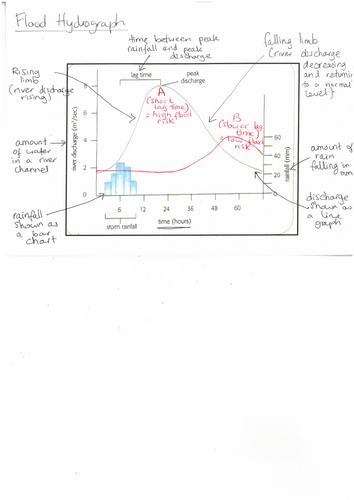 Flood Hydrograph
time between peak
rainfall and peak
discharge
falling limb
(river discharge
decreasing
and returnin
to a normal
level)
Rising
limb
(river discharge
rising)
lag time
peak
discharge
A
(short
lag time)
= high flood
risk
B
(slower lag
time)
risk
amount
of water
in a river
channel
river discharge (m³/sec)
8
6
4
2
0
60
40
20
0
rainfall (mm)
amount of
rain
falling in
mm
6
12
24
36
48
60
storm rainfall
time (hours)
rainfall
shown as
a bar
chart
discharge
shown as
a line
graph